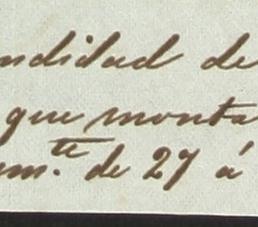 ndidad de
que monta
em.te de 27 á